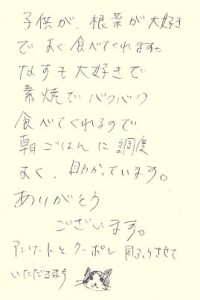 子供が、根菜が大好き
でよく食べてくれます。
なすも大好きで
素焼でパクパク
食べてくれるので
朝ごはんに調度
よく、助かっています。
ありがとう
ございます。
アンケートとクーポン 同ふうさせて
いただきます